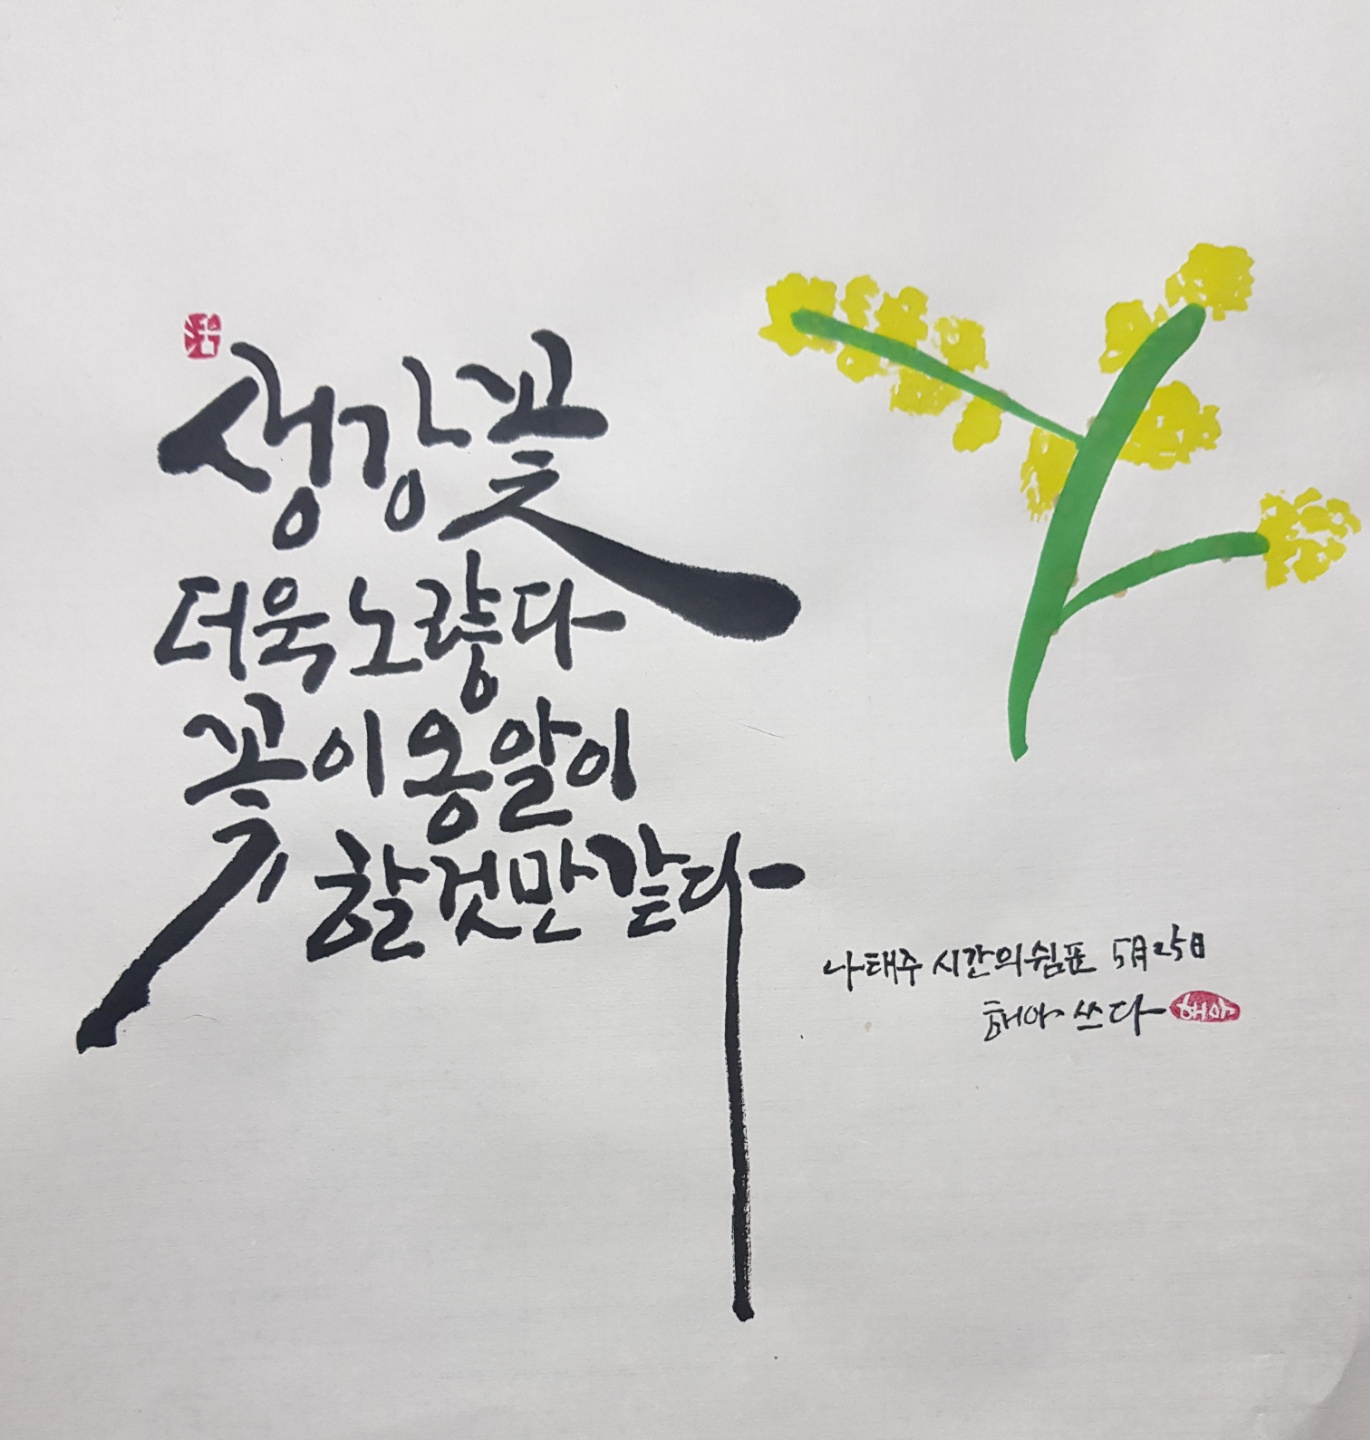 생강꽃
더욱 노랗다
꽃이 옹알이
할 것만 같다
나태주 시간의 쉼표 5月25日
해아 쓰다
해아